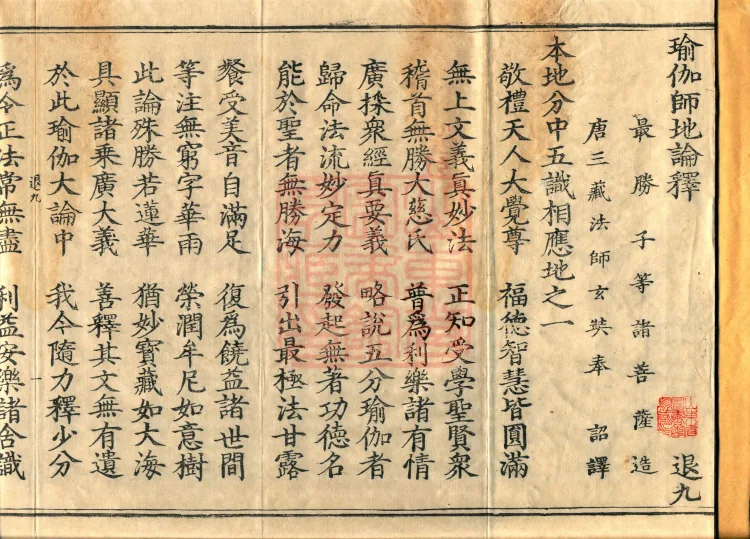 瑜伽師地論釋 退九
最勝子等諸菩薩造
唐三藏法師玄奘奉 詔譯
本地分中五識相應地之一
敬禮天人大覺尊 福德智慧皆圓滿
無上文義真妙法 正知受學聖賢衆
稽首無勝大慈氏 普為利樂諸有情
廣採衆經真要義 略說五分瑜伽者
歸命法流妙定力 發起無著功德名
能於聖者無勝海 引出最極法甘露
餐受美音自滿足 復為饒益諸世間
等注無窮字華雨 榮潤牟尼如意樹
此論殊勝若蓮華 猶妙寶藏如大海
具顯諸乘廣大義 善釋其文無有遺
於此瑜伽大論中 我今隨力釋少分
退九 一
為令正法常無盡 利益安樂諸含識